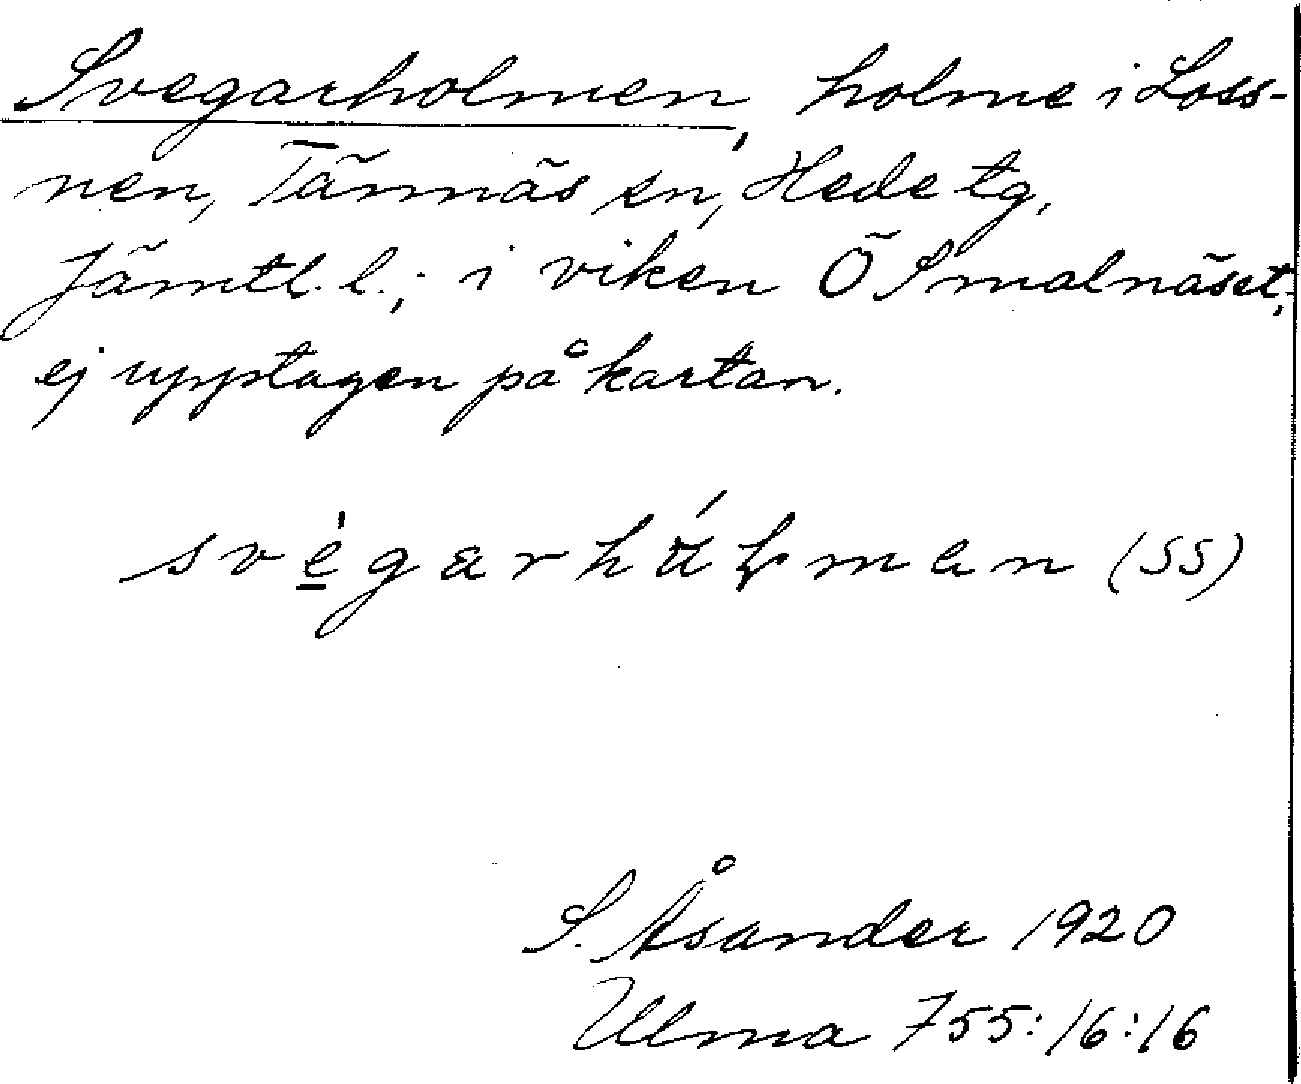 Svegarholmen, holme i Loss-
nen, Tännäs sn, Hede tg,
Jämtl. l.; i viken Ö Smalnäset,
ej upptagen på kartan.
(SS)
S. Åsander 1920
Ulma 755:16:16